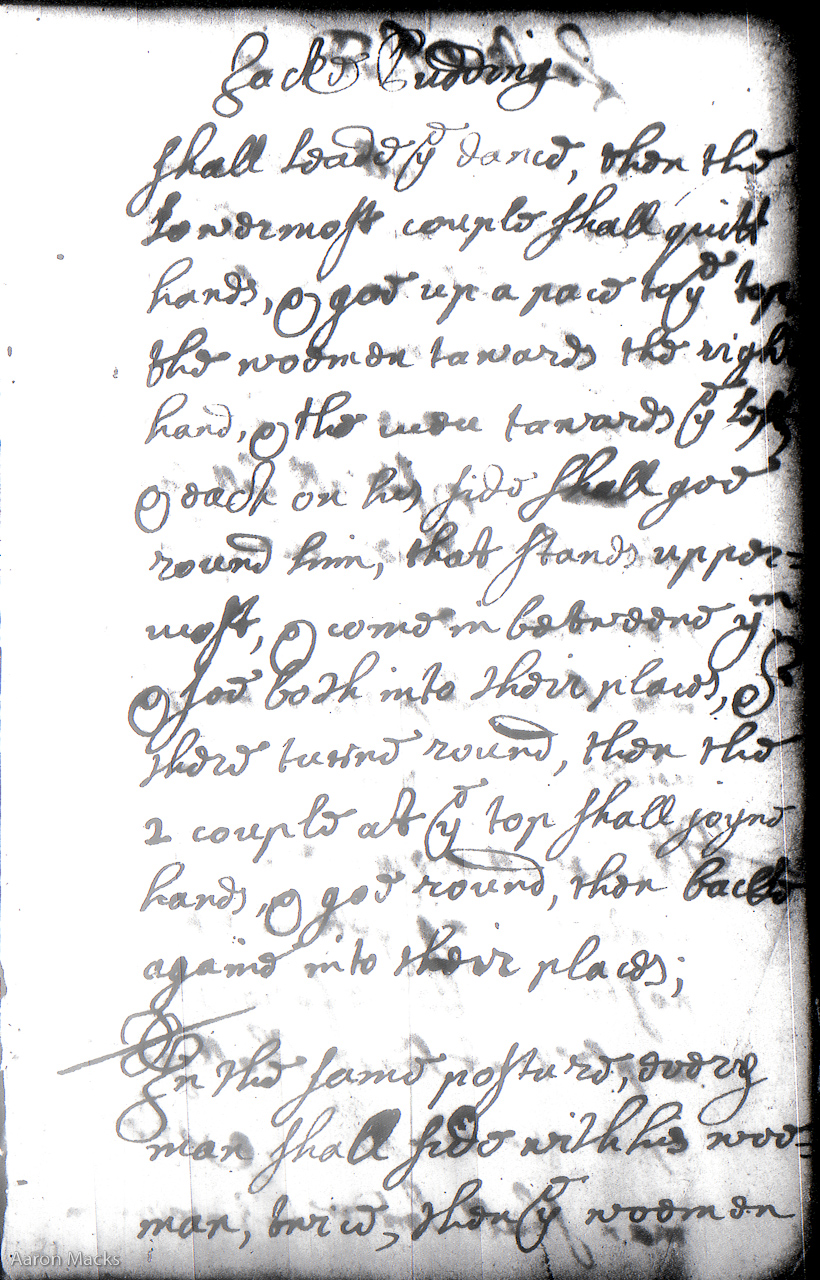 Jacke Pudding
shall leade yͤ dance, then the
lowermost couple shall quitt
hands, & goe up a pace to yͤ top
the woemen towards the right
hand, & the men towards yͤ left
& each on his side shall goe
round him, that stands upper=
most, & come in betweene yͫ
& soe both into their places, &
there turne round, then the
2 couple att yͤ top shall joyne
hands, & goe round, then backe
againe into their places;
In the same posture, every
man shall side with his woe=
man, twice, then yͤ woemen
Aaron Macks